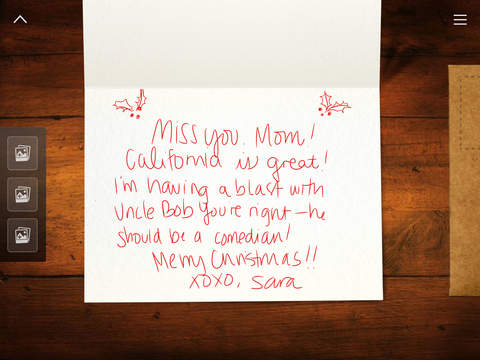 Miss you, Mom!
California is great!
I'm having a blast with
Uncle Bob You're right—he
should be a comedian!
Merry Christmas!!
XOXO, Sara